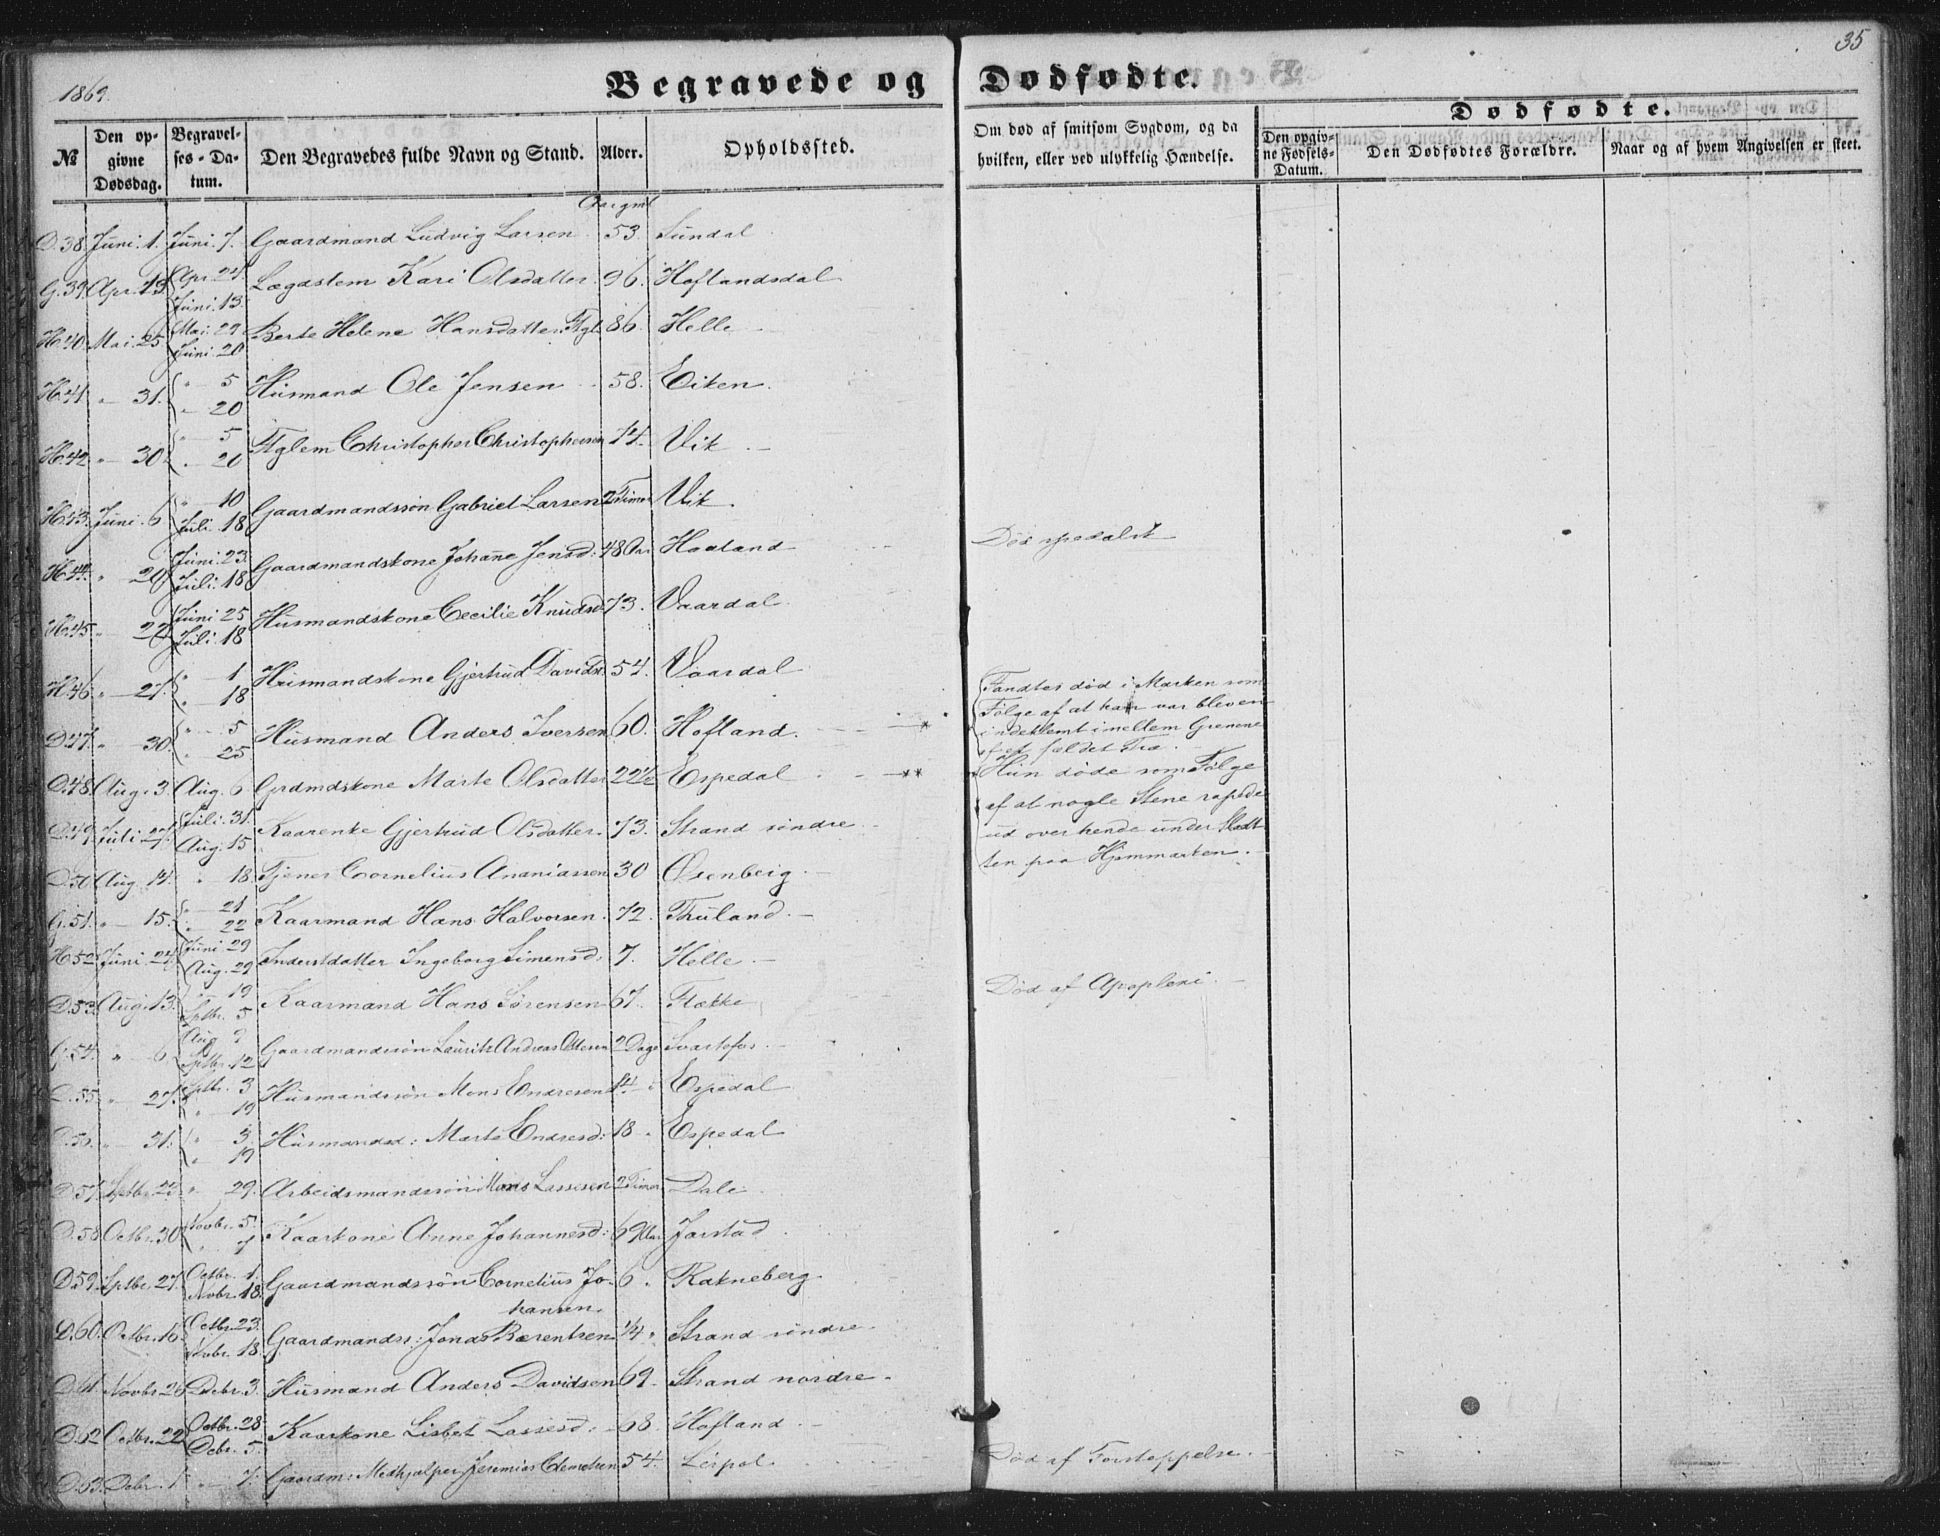 35
1869.
Begravede og Dødfødte.
Dødfødte.
№
Den op-
givne
Dødsdag.
Begravel-
ses-Da-
tum.
Den Begravedes fulde Navn og Stand.
Alder.
Opholdssted.
Om død af smitsom Sygdom, og da
hvilken, eller ved ulykkelig Hændelse.
Den opgiv-
ne Fødsels-
Datum.
Den Dødfødtes Forældre.
Naar og af hvem Angivelsen er skeet.
Aar gml
D.38. Juni 1. Juni 7. Gaardmand Ludvig Larsen 53. Sundal
G.39. Apr. 13. Apr. 24. Juni 13. Lægdslem Kari Olsdatter 96. Hoflandsdal
H.40. Mai 25. Mai 29. Juni 20. Berte Helene Hansdatter Ftgl. 86. Helle
H.41. " 31. " 5 " 20 Husmand Ole Jensen 58. Eiken
H.42. " 30. " 5 " 20 Ftglem Christopher Christophersen 74. Vik
H.43. Juni 6. " 10 Juli 18 Gaardmandssøn Gabriel Larsen 2 Timer Vik.
H.44. " 20. Juni 23. Juli 18 Gaardmandskone Johanne Jensd: 48 Aar Haaland
Død spedalsk
H.45. " 22. Juni 25 Juli 18 Husmandskone Cecilie Knudsd 73. Vaardal
H.46. " 27. " 1 " 18 Husmandskone Gjertrud Davidsd. 54. Vaardal
D.47. " 30. " 5 " 25 Husmand Anders Iversen 60. Hofland. *
Fandtes død i Marken som
Følge af at han var bleven
indeklemt imellem Grenene
af et fældet Træ.
D.48. Aug. 3. Aug. 6 Grdmdskone Marte Olsdatter 22½ Espedal **
Hun døde som Følge
af at nogle Stene rapede
ud over hende under Slaat-
ten paa Hjemmarken.
D.49. Juli 27. Juli 31. Aug. 15 Kaarenke Gjertrud Olsdatter. 73. Strand søndre
D.50. Aug. 14. " 18. Tjener Cornelius Ananiassen 30 Øsenberg
G.51. " 15. " 21 " 22 Kaarmand Hans Halvorsen. 72. Thuland.
H.52. Juni 24. Juni 29 Aug. 29 Inderstdatter Ingeborg Simensd: 7. Helle
D.53. Aug. 13. " 19 Sptbr. 5 Kaarmand Hans Sørensen 67. Flekke
Død af Apoplexi.
G.54. " 6. Aug. 9 Sptbr. 12 Gaardmandssøn Lauritz Andreas Ottesen 2 Dage Svartefos.
D.55. " 27. Sptbr. 3 " 19 Husmandssøn Mons Endresen 14 Espedal
D.56. " 31. " 3. " 19 Husmandsd: Marte Endresd: 18 Espedal
D.57. Sptbr. " 29. Arbeidsmandssøn Mons Lassesen 2 Timer Dale
D.58. Octbr. 30 Novbr. 5. " 7 Kaarkone Anne Johannesd: 69 Aar Jarstad
D.59. Sptbr. 27. Octbr. 1 Novbr. 18. Gaardmandssøn Cornelius Jo-
hansen 6. Rakneberg
D.60. Octbr. 16. Octbr. 23. Novbr. 18. Gaardmandss: Jonas Bærentsen ¼ " Strand søndre
D.61. Novbr. 26 Debr. 3. Husmand Anders Davidsen 69. Strand nordre.
D.62. Octbr. 22 Octbr. 28 Debr. 5. Kaarkone Lisbet Lassesd: 68. Hofland.
D.63. Debr. 1 " 7. Gaardm: Medhjælper Jeremias Clemetsen 54. Leirpol
Død af Forstoppelse.